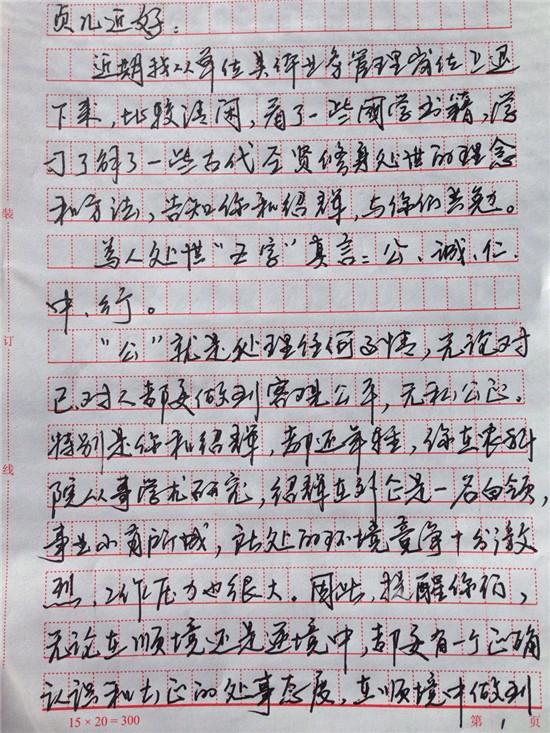 贞儿近好：
近期我从单位某行业务管理岗位上退
下来，比较清闲，看了一些国学书籍，学
习了解了一些古代圣贤修身处世的理念
和方法，告知你和绍群，与你们共勉。
为人处世“五字”真言：公、诚、仁、
中、行。
“公”就是处理任何事情，无论对
己对人都要做到客观公平，无私公正。
特别是你和绍群，都还年轻，你在农科
院从事学术研究，绍群在外企是一名白领，
事业小有所成，站处的环境竞争十分激
烈，工作压力也很大。因此，提醒你们，
无论在顺境还是逆境中，都要有一个正确
认识和公正的处事态度，在顺境中做到
装
订
线
15×20=300
第 1 页